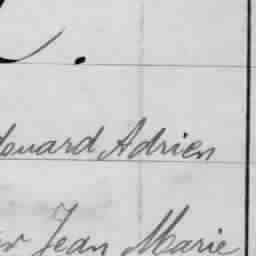 douard Adrien
Jean Marie